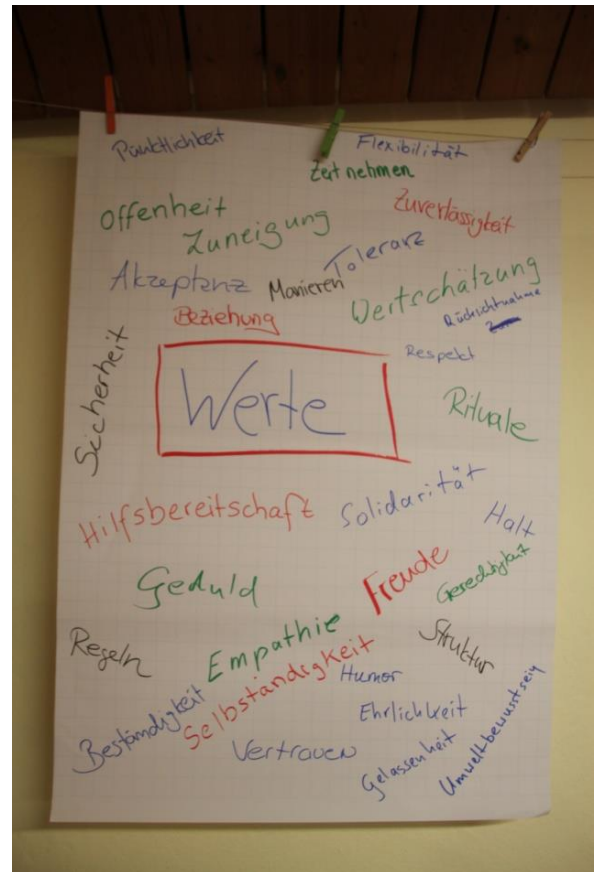 Pünktlichkeit
Flexibilität
Zeit nehmen
Offenheit
Zuverlässigkeit
Zuneigung
Toleranz
Akzeptanz
Manieren
Wertschätzung
Rücksichtnahme
Beziehung
Respekt
Sicherheit
Werte
Rituale
Hilfsbereitschaft
Solidarität
Halt
Geduld
Freude
Gerechtigkeit
Regeln
Empathie
Struktur
Selbständigkeit
Humor
Beständigkeit
Ehrlichkeit
Vertrauen
Gelassenheit
Umweltbewusstsein